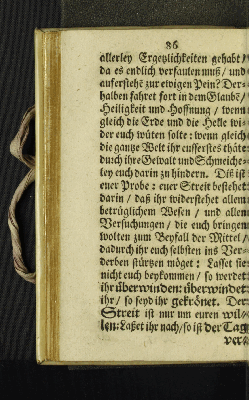 86
allerley Ergetzlichkeiten gehabt /
da es endlich verfaulen muß / und
auferstehē zur ewigen Pein? Der-
halben fahret fort in dem Glaubē /
Heiligkeit und Hoffnung / wenn
gleich die Erde und die Helle wi-
der euch wüten solte: wenn gleich
die gantze Welt ihr eusserstes thäte
durch ihre Gewalt und Schmeiche-
ley euch darin zu hindern. Diß ist
eure Probe: euer Streit bestehet
darin / daß ihr widerstehet allem
betrüglichem Wesen / und allem
Versuchungen / die euch bringen
wolten zum Beyfall der Mittel /
dadurch ihr euch selbsten ins Ver-
derben stürtzen möget: Lasset sie
nicht euch beykommen / so werdet
ihr überwinden: überwindet
ihr / so seyd ihr gekrönet. Der
Streit ist nur um euren wil-
len: Laßet ihr nach / so ist der Tag
ver-